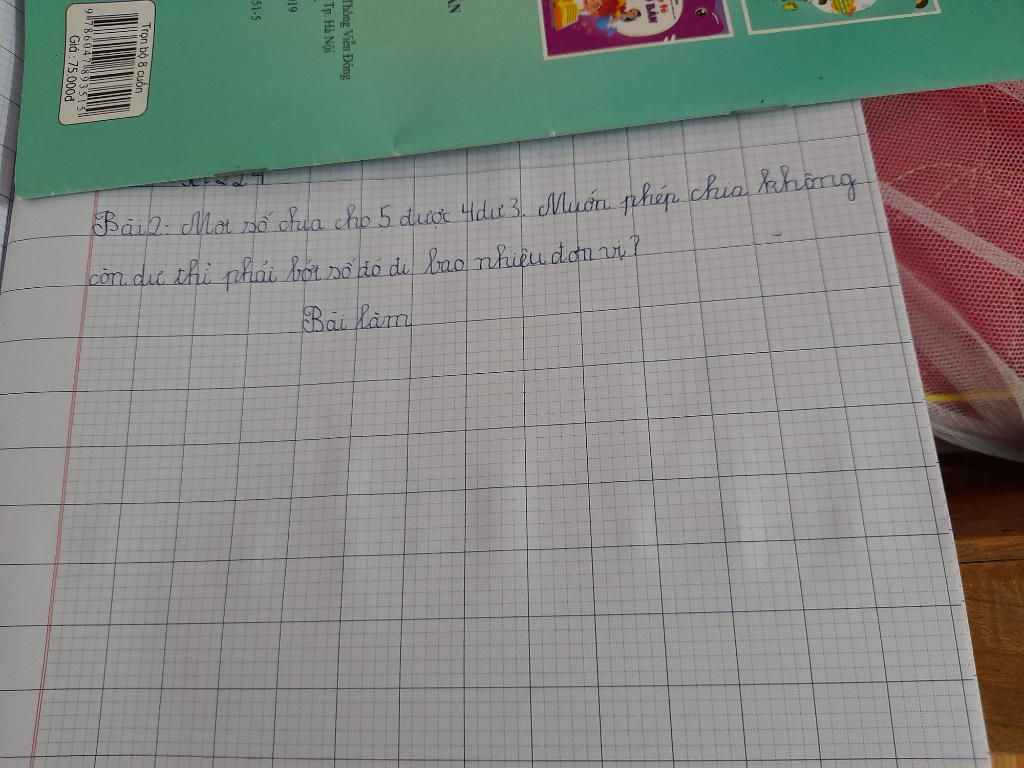 Trọn bộ 8 cuốn
Giá : 75.000đ
Bài 2: Một số chia cho 5 được 4 dư 3. Muốn phép chia không
còn dư thì phải bớt số đó đi bao nhiêu đơn vị?
Bài làm